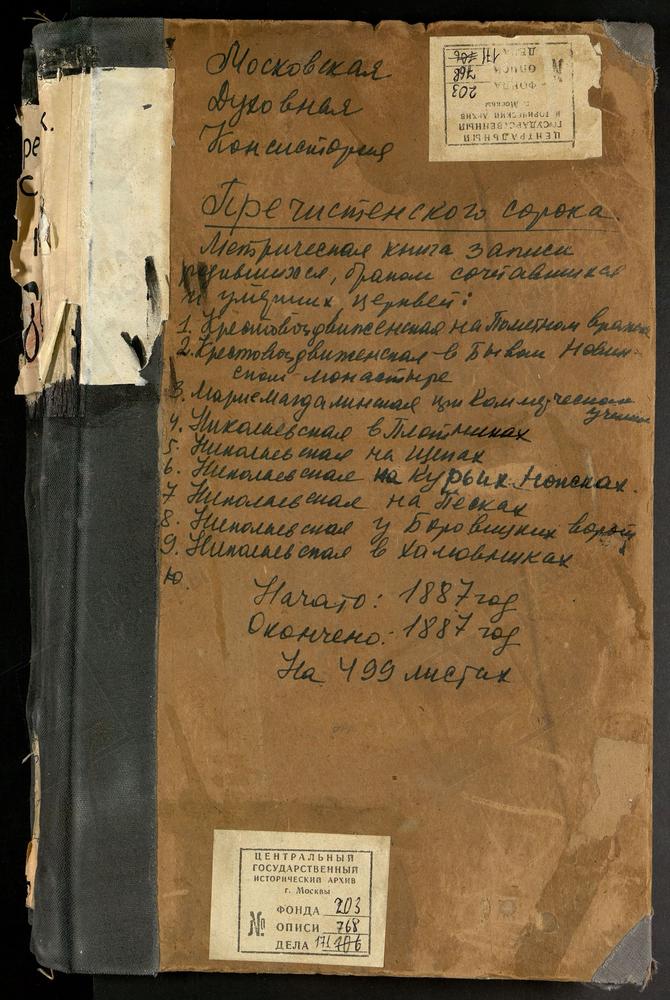 Московская
Духовная
Консистория
Пречистенского сорока
Метрическая книга записи
родившихся, браком сочетавшихся
и умерших церквей:
1. Крестовоздвиженская на Пометном вражке
2. Крестовоздвиженская в Бывш Новин-
ском монастыре
3. Мариемагдалинская при Коммерческом
училищ
4. Николаевская в Плотниках
5. Николаевская на Щепах
6. Николаевская на Курьих Ножках.
7 Николаевская на Песках
8. Николаевская у Боровицких ворот
9. Николаевская в Хамовниках
10.
Начато: 1887 год
Окончено: 1887 год
На 499 листах
ЦЕНТРАЛЬНЫЙ
ГОСУДАРСТВЕННЫЙ
ИСТОРИЧЕСКИЙ АРХИВ
г. Москвы
ФОНДА 203
№ ОПИСИ 768
ДЕЛА 171
ЦЕНТРАЛЬНЫЙ
ГОСУДАРСТВЕННЫЙ
ИСТОРИЧЕСКИЙ АРХИВ
г. Москвы
ФОНДА 203
№ ОПИСИ 768
ДЕЛА 171